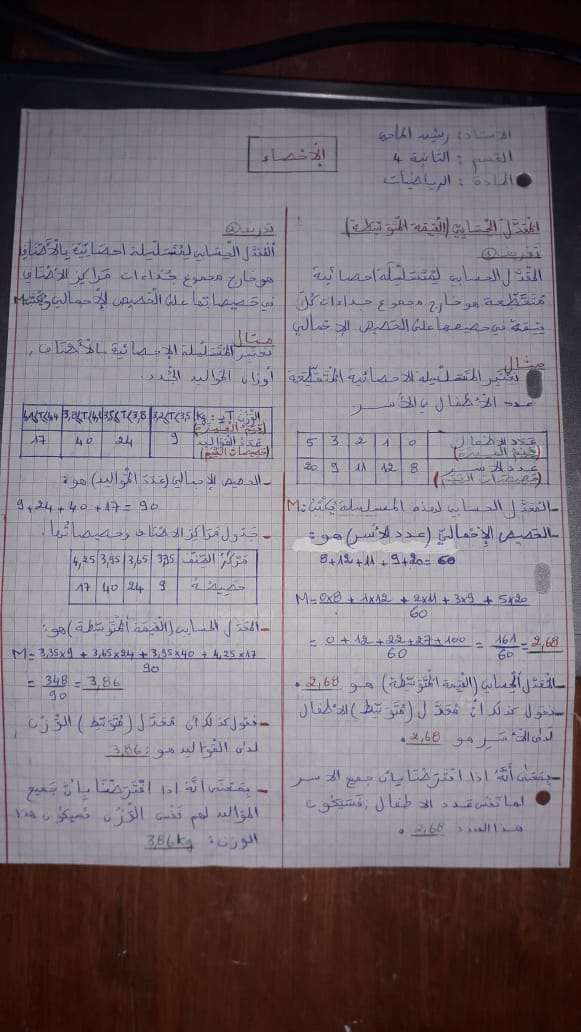 الأستاذ: رشيد الماحي
القسم: الثانية 4
المادة: الرياضيات
الإحصاء
المعدل الحسابي (القيمة المتوسطة)
تعريف①
المعدل الحسابي لمتسلسلة احصائية
متقطعة هو خارج مجموع جداءات كل
قيمة في حصيصها على الحصيص الإجمالي
مثال
نعتبر المتسلسلة الاحصائية المتقطعة
عدد الأطفال في الأسر
عدد الاطفال 0 1 2 3 5
(قيم الميزة)
عدد الاسر 8 12 11 9 20
(حصيصات القيم)
المعدل الحسابي لهذه المتسلسلة يكتب: M
الحصيص الإجمالي (عدد الأسر) هو:
8+12+11+9+20=60
M=0x8 + 1x12 + 2x11 + 3x9 + 5x20
60
= 0+12+22+27+100 = 161 = 2,68
60 60
-المعدل الحسابي (القيمة المتوسطة) هو 2,68.
نقول كذلك أن معدل (متوسط) الأطفال
لدى الأسر هو 2,68.
-بمعنى أنه اذا افترضنا بان جميع الاسر
لها نفس عدد الاطفال، فسيكون
هذا العدد: 2,68.
تعريف②
المعدل الحسابي لمتسلسلة احصائية بالأصناف
هو خارج مجموع جداءات مراكز الأصناف
في حصيصاتها على الحصيص الإجمالي M
مثال
نعتبر المتسلسلة الإحصائية بالأصناف،
أوزان المواليد الجدد.
الوزن T ب Kg: 3,2≤T<3,5 3,5≤T<3,8 3,8≤T<4,1 4,1≤T<4,4
(قيم الميزة)
عدد المواليد 9 24 40 17
(حصيصات القيم)
-الحصيص الإجمالي (عدد المواليد) هو:
9+24+40+17=90
-جدول مراكز الاصناف وحصيصاتها.
مركز الصنف 3,35 3,65 3,95 4,25
حصيصه 9 24 40 17
-المعدل الحسابي (القيمة المتوسطة) هو:
M=3,35x9 + 3,65x24 + 3,95x40 + 4,25x17
90
= 348 = 3,86
90
-نقول كذلك أن معدل (متوسط) الوزن
لدى المواليد هو: 3,86.
- بمعنى أنه اذا افترضنا بأن جميع
المواليد لهم نفس الوزن فسيكون هذا
الوزن: 3,86kg